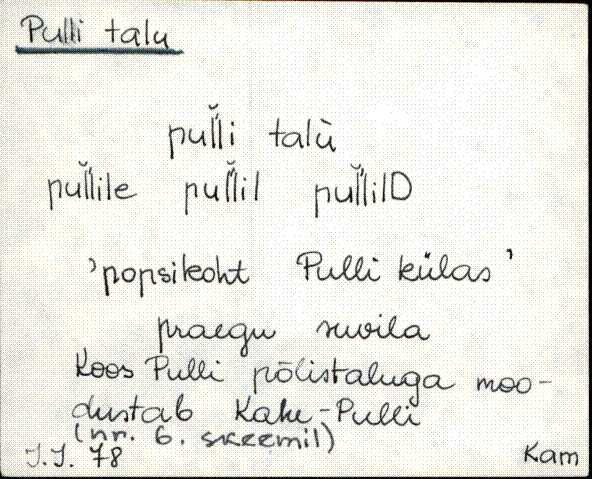 Pulli talu
pul̆li talù
pul̆lile pul̆lil pul̆lilD
'popsikoht Pulli külas'
praegu suvila
Koos Pulli põlistaluga moo-
dustab Kahe-Pulli
(nr. 6. skeemil)
J.J. 78 Kam